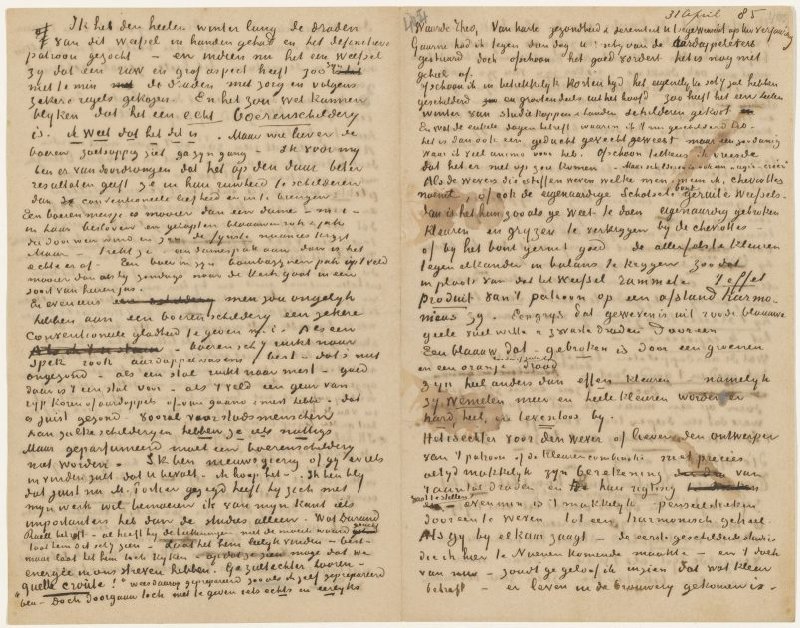 Ik heb den heelen winter lang de draden
van dit weefsel in handen gehad en het definitieve
patroon gezocht – en indien nu het een weefsel
zij dat een ruw en grof aspect heeft zoo
niettemin de draden met zorg en volgens
zekere regels gekozen. En het zou wel kunnen
blijken dat het een echt boerenschilderij
is. ik weet dat het dit is. Maar wie liever de
boeren zoetsappig ziet ga zijn gang – Ik voor mij
ben er van doordrongen dat het op den duur beter
resultaten geeft ze in hun ruwheid te schilderen
dan conventioneele liefheid er in te brengen
Een boerenmeisje is mooier dan een dame – m.i. –
in haar bestoven en gelapten blaauwen rok & jak
die door weer wind en zon de fijnste nuances krijgt.
Maar – trekt ze een damespak aan dan is het
echte er af. Een boer in zijn bombazijnen pak op 't veld
mooier dan als hij zondags naar de kerk gaat in een
soort van heerenjas.
En eveneens men zou ongelijk
hebben aan een boerenschilderij een zekere
conventioneele gladheid te geven m.i. Als een
boerenschij ruikt naar
spek rook aardappelwasem – best – dat's niet
ongezond – als een stal ruikt naar mest – goed
daar is 't een stal voor – als 't veld een geur van
rijp koren of aardappels of van guano & mest hebbe – dat
is juist gezond. vooral voor stadsmenschen
Aan zulke schilderijen hebben ze iets nuttigs
Maar geparfumeerd moet een boerenschilderij
niet worden. Ik ben nieuwsgierig of gij er iets
in vinden zult dat U bevalt – ik hoop het – Ik ben blij
dat juist nu Mr Portier gezegd heeft hij zich met
mijn werk wil bemoeien ik van mijn kant iets
importanters heb dan de studies alleen. Wat Durand
Ruel betreft – al heeft hij de teekeningen niet de moeite waard geacht
laat hem dit schij zien – laat hem
maar laat het hem toch kijken – opdat ze zien moge dat we
energie in ons streven hebben. Ge zult echter hooren –
"quelle croûte!" wees daarop geprepareerd zooals ik zelf geprepareerd
ben – Doch Doorgaan toch met te geven iets echts en eerlijks
31 April 85
Waarde Theo, Van harte gezondheid & sereniteit U toegewenscht op Uw verjaardag
Gaarne had ik tegen dien dag U 't schij van de aardappeleters
gestuurd doch ofschoon het goed vordert het is nog niet
geheel af.
ofschoon ik in betrekkelijk korten tijd het eigentlijke schij zal hebben
geschilderd en grootendeels uit het hoofd zoo heeft het een heelen
winter van studie koppen & handen schilderen gekost
En wat de enkele dagen betreft waarin ik 't nu geschilderd heb.
het is dan ook een geducht gevecht geweest maar een zoodanig
waar ik veel animo voor heb. Ofschoon telkens ik vreesde
dat het er niet op zou komen.
Als de wevers die stoffen weven welke men meen ik, cheviottes
noemt, of ook de eigenaardige Schotsch bont geruite weefsels –
Dan is het hun zooals ge weet te doen eigenaardig gebroken
kleuren en grijzen te verkrijgen bij de cheviottes
of bij het bont geruit goed de allerfelste kleuren
tegen elkander in balans te krijgen zoodat
in plaats van dat het weefsel rammele 't effet
produit van 't patroon op een afstand Harmo-
nieus zij. Een grijs dat geweven is uit roode blaauwe
geele vuil witte & zwarte draden dooreen
Een blaauw dat gebroken is door een groenen
en een oranje draad
zijn heel anders dan effen kleuren namelijk
zij wemelen meer en heele kleuren worden er
hard, heel, en levenloos bij.
Het is echter voor den wever of liever den ontwerper
van 't patroon of de kleurencombinatie niet precies
altijd makkelijk zijn berekening van
aantal draden en hun rigting
vast te stellen – evenmin is 't makkelijk penseelstreken
dooreen te weven tot een harmonisch geheel
Als gij bij elkaar zaagt de eerste geschilderde studies
die ik hier te Nuenen komende maakte – en 't doek
van nu – zoudt ge geloof ik inzien dat wat kleur
betreft – er leven in de brouwerij gekomen is –